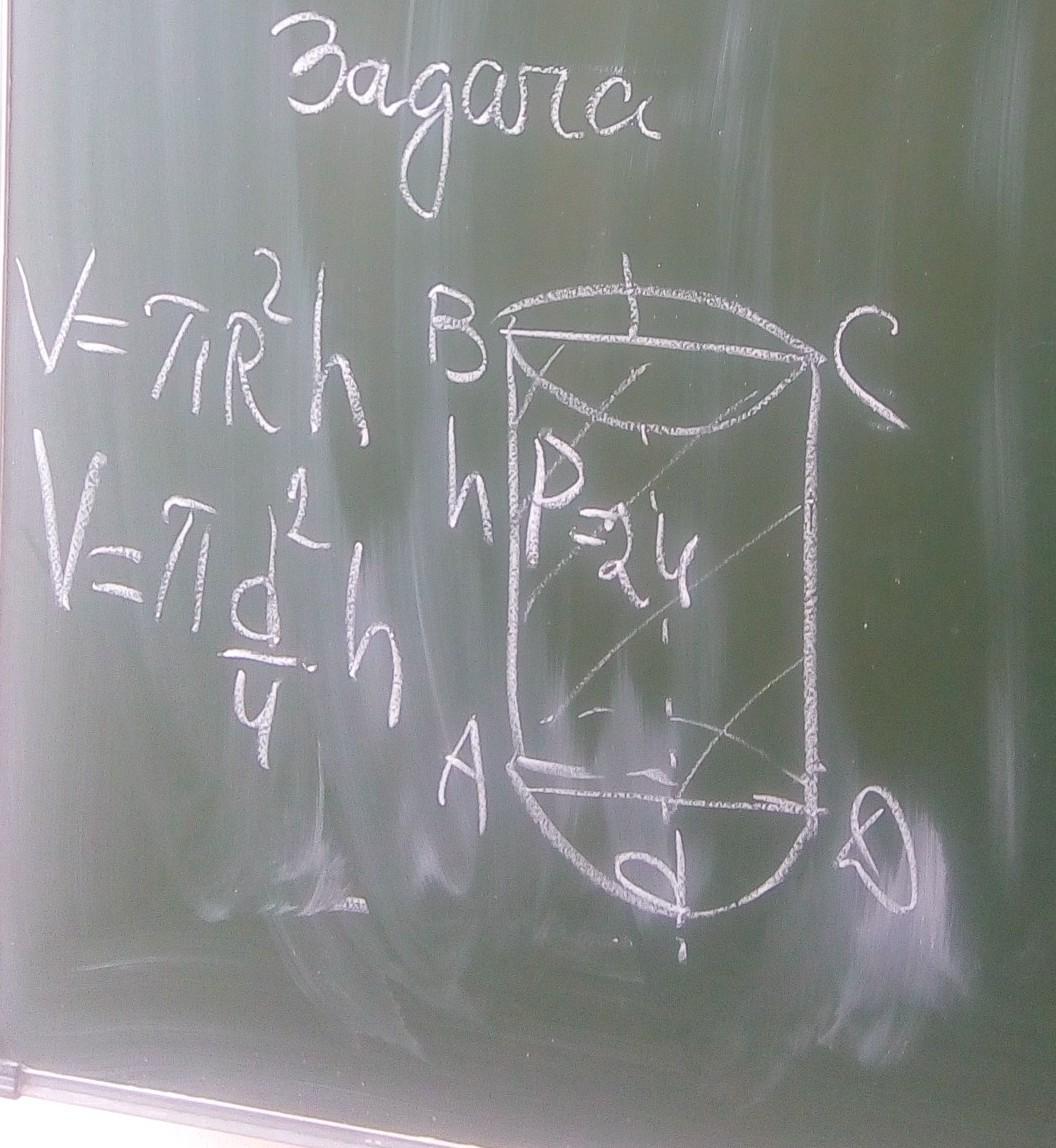 Задача
V=πR²h
V=π d²/4 · h
B
C
h
P=24
A
D
d